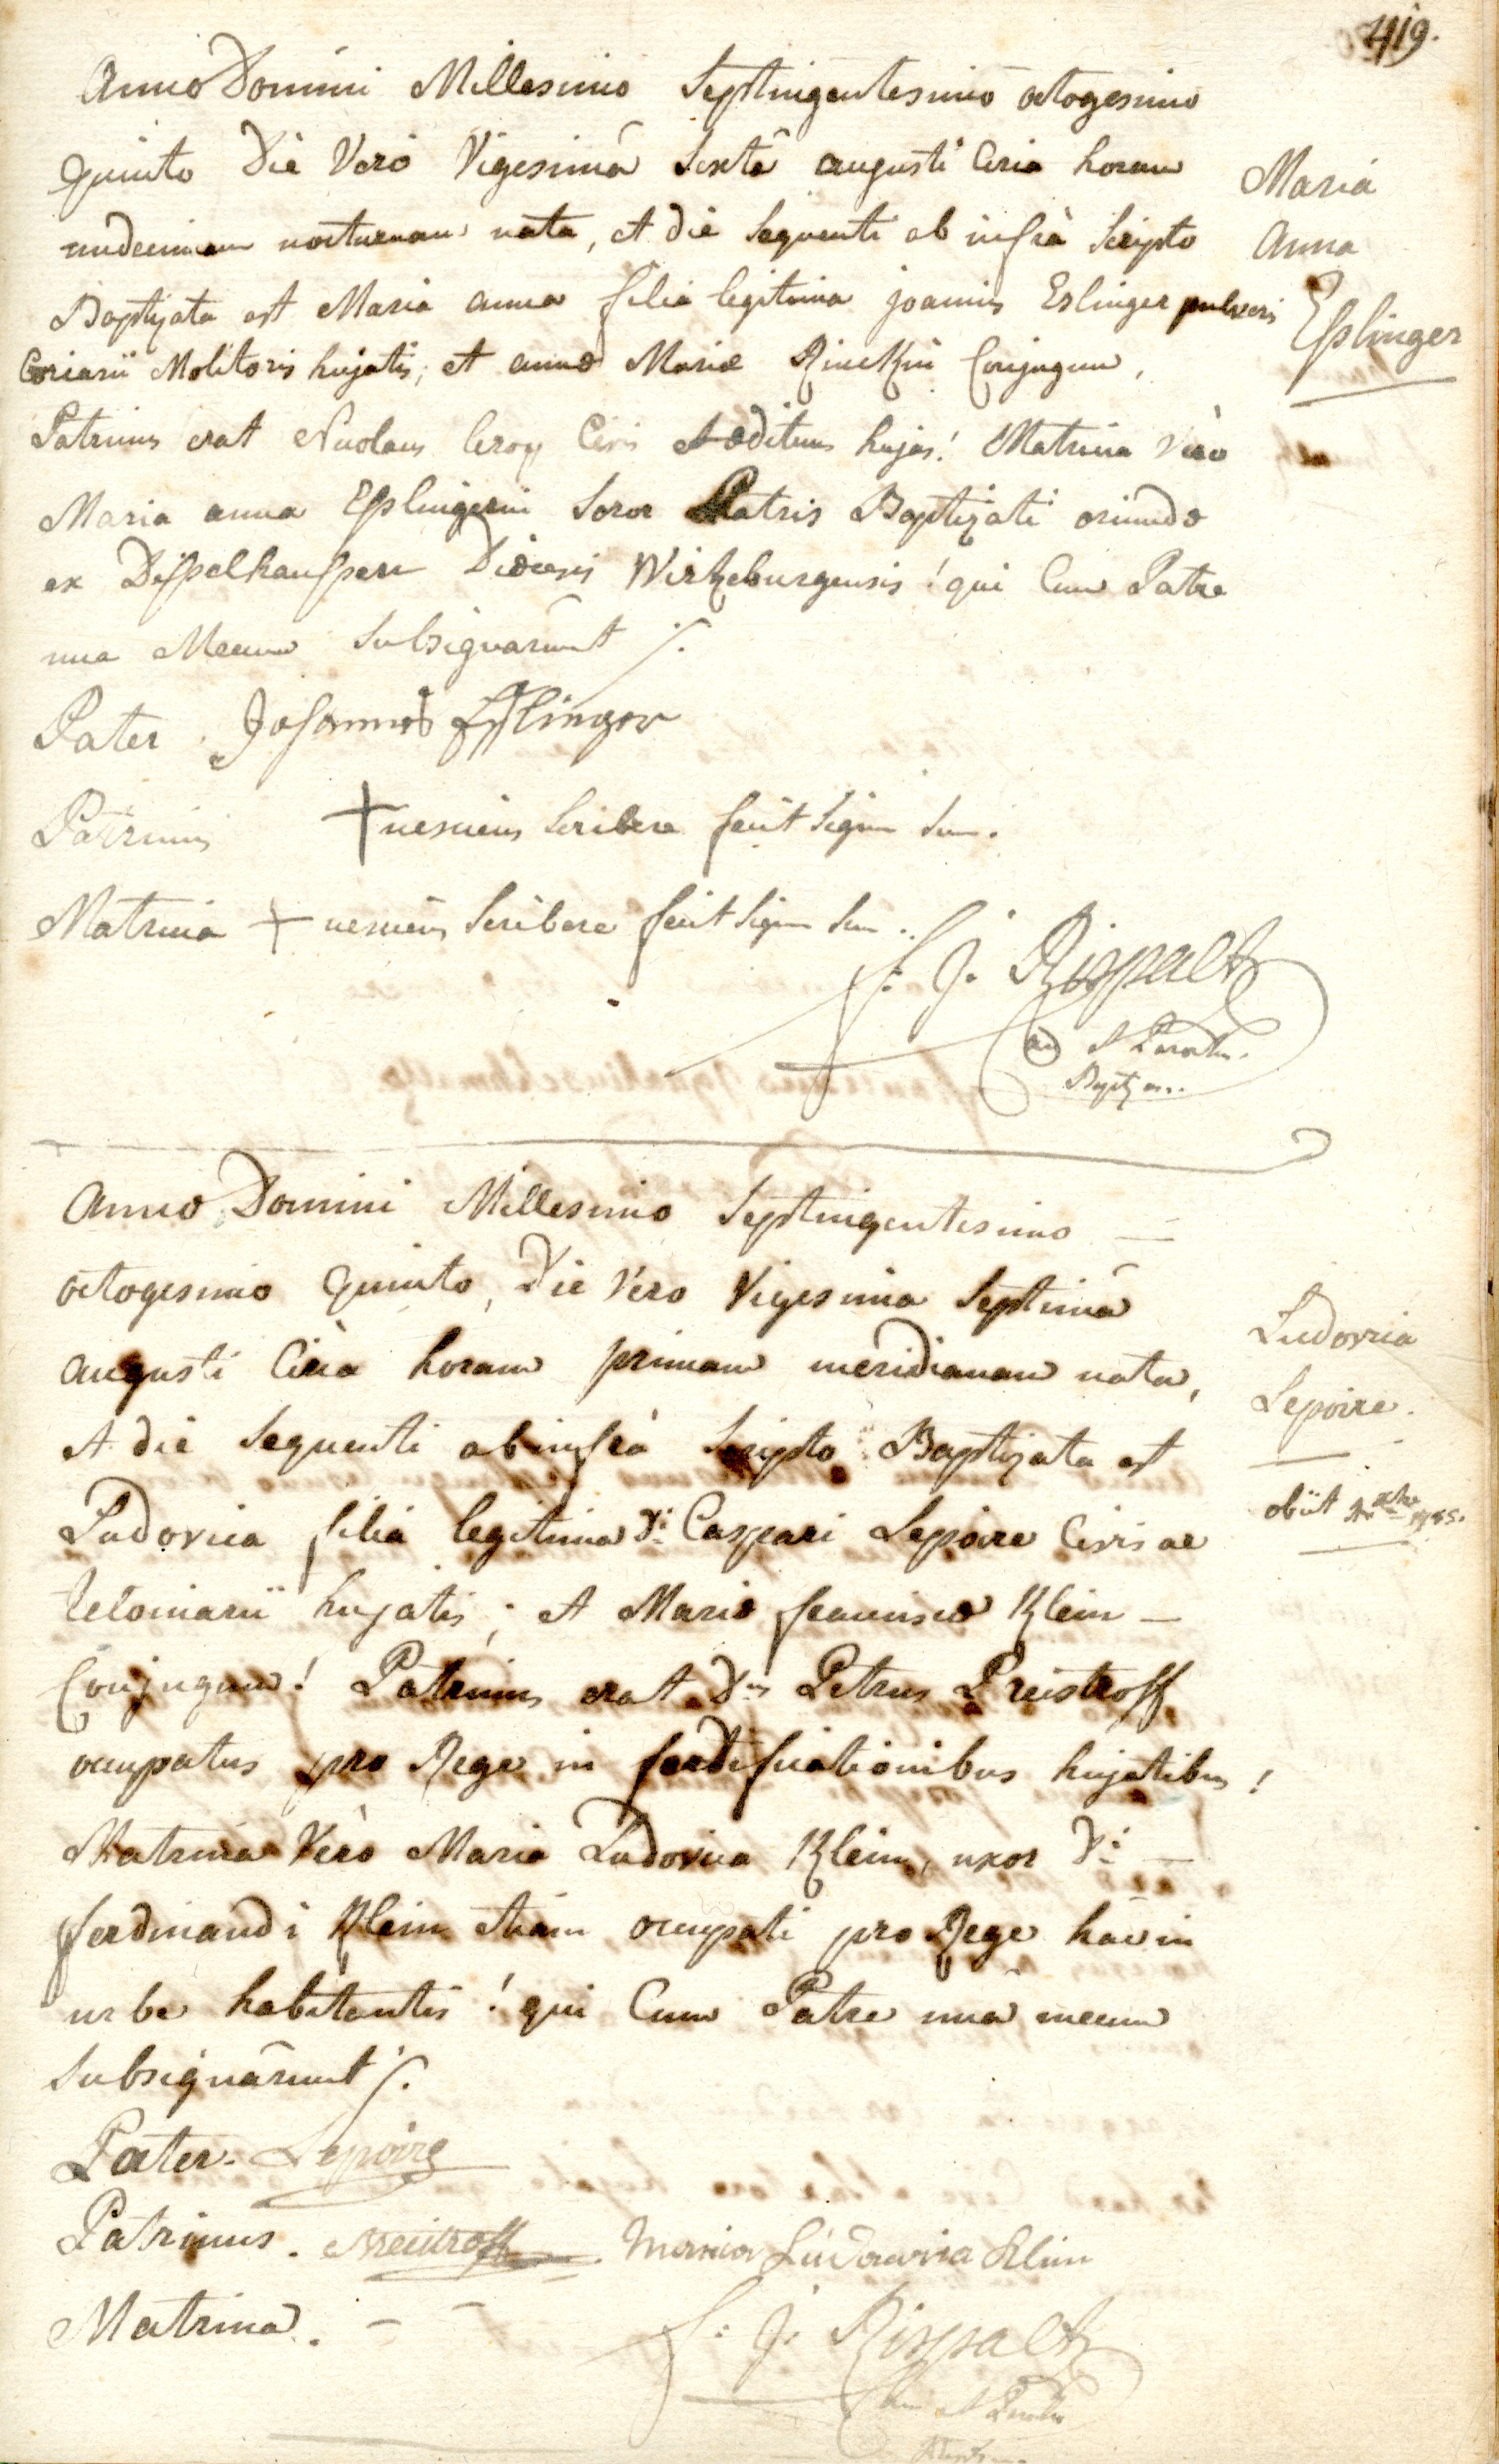 419.
Anno Domini Millesimo Septingentesimo octogesimo
quinto Die Vero Vigesimâ Sextâ augusti Circa horam
undecimam nocturnam nata, et die Sequenti ab infrà Scripto
Baptizata est Maria anna filia legitima joannis Eslinger pulveris
Coriarii Molitoris hujatis; et annæ Mariæ Rinckin Conjugum,
Patrinus erat Nicolaus leroy Civis Ædituus hujas! Matrina Vero
Maria anna Esslingerin Soror Patris Baptizati oriunda
ex Disselhaussen Diœcesis Wirtzeburgensis! qui Cum Patre
una Mecum Subsignarunt ./.
Maria
Anna
Esslinger
Pater. Johannes Esslinger
Patrinus + nesciens Scribere fecit Signum Suum.
Matrina + nesciens Scribere fecit Signum Suum..
f: J. Rispalt
Anno Domini Millesimo Septingentesimo —
octogesimo quinto, Die Vero Vigesima Septimâ
augusti Circa horam primam meridianam nata,
et die Sequenti ab infrà Scripto Baptizata est
Ludovica filia legitima Di: Caspari Lepoire Civis ac
teloniarii hujatis; et Mariæ franciscæ Klein —
Conjugum! Patrinus erat Dnus Petrus Preistroff
occupatus pro Rege in fordificationibus hujatibus!
Matrina Vero Maria Ludovica Klein, uxor Di: —
ferdinandi Klein etiam occupati pro Rege hac in
urbe habitantis! qui Cum Patre unâ mecum
Subsignârunt ./.
Ludovica
Lepoire.
obiit 1785.
Pater. Lepoire
Patrinus. Preistroff. Maria Ludowica Klein
Matrina. — —
f: J. Rispalt